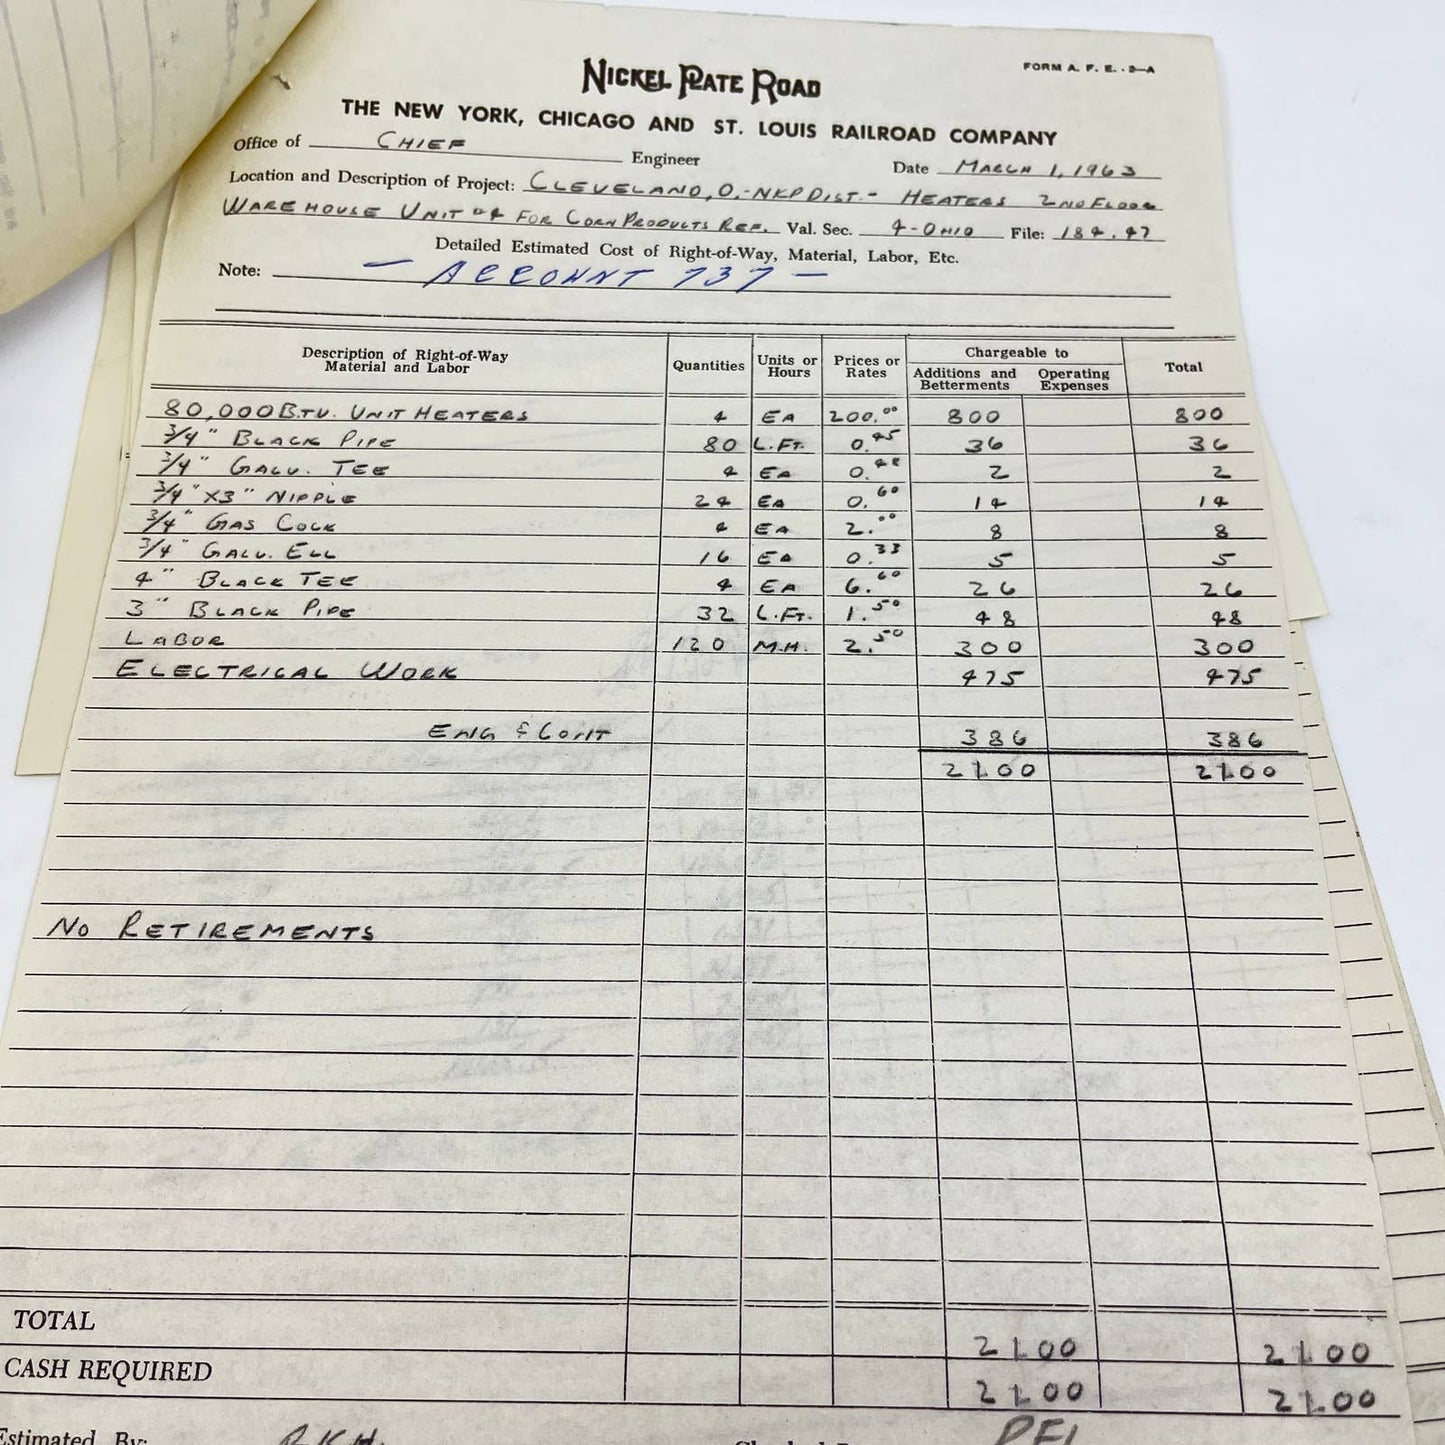 NICKEL PLATE ROAD
FORM A. F. E. - 2-A
THE NEW YORK, CHICAGO AND ST. LOUIS RAILROAD COMPANY
Office of CHIEF Engineer Date MARCH 1, 1963
Location and Description of Project: CLEVELAND, O.-NKP DIST.- HEATERS 2ND FLOOR
WAREHOUSE UNIT #4 FOR CORN PRODUCTS REF. Val. Sec. 4-OHIO File: 184.47
Detailed Estimated Cost of Right-of-Way, Material, Labor, Etc.
Note: — ACCOUNT 737 —
Description of Right-of-Way Material and Labor Quantities Units or Hours Prices or Rates Chargeable to Additions and Betterments Operating Expenses Total
80,000 BTU. UNIT HEATERS 4 EA 200.00 800 800
3/4" BLACK PIPE 80 L.FT. 0.45 36 36
3/4" GALV. TEE 4 EA 2 2
3/4" X 3" NIPPLE 24 EA 0.60 14 14
3/4" GAS COCK 4 EA 2.00 8 8
3/4" GALV. ELL 16 EA 0.33 5 5
4" BLACK TEE 4 EA 6.60 26 26
3" BLACK PIPE 32 L.FT. 1.50 48 48
LABOR 120 M.H. 2.50 300 300
ELECTRICAL WORK 475 475
ENG & CONT 386 386
2100 2100
NO RETIREMENTS
TOTAL 2100 2100
CASH REQUIRED 2100 2100
Estimated By: R.K.H.